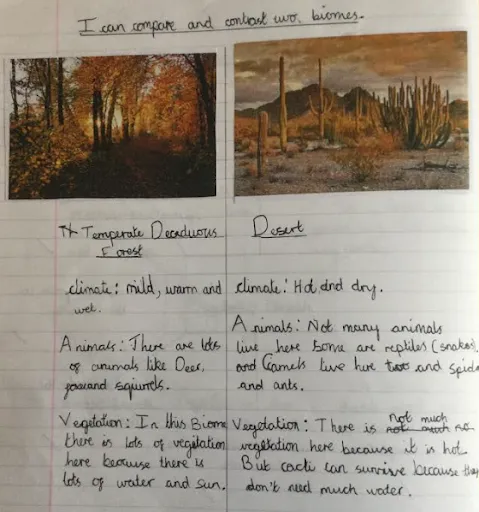 I can compare and contrast two biomes.
Temperate Deciduous
Forest
climate: mild, warm and
wet.
Animals: There are lots
of animals like Deer,
and squirrels.
Vegetation: In this Biome
there is lots of vegitation
here because there is
lots of water and sun.
Desert
climate: Hot and dry.
Animals: Not many animals
live here some are reptiles (snakes),
and Camels live here and
and ants.
Vegetation: There is not much
vegetation here because it is hot
But cacti can survive because they
don't need much water.